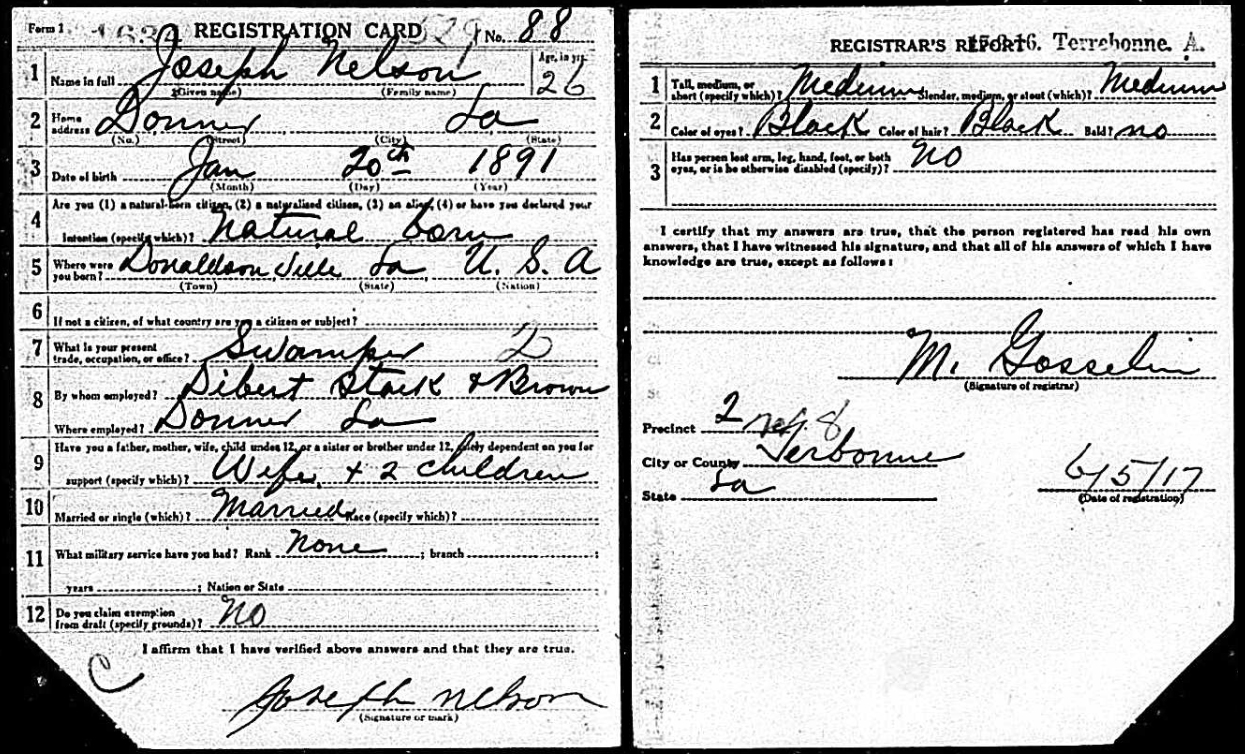 Form 1 REGISTRATION CARD No. 88
1 Name in full Joseph Nelson Age, in yrs. 26
(Given name) (Family name)
2 Home address Donner La
(No.) (Street) (City) (State)
3 Date of birth Jan 20th 1891
(Month) (Day) (Year)
4 Are you (1) a natural-born citizen, (2) a naturalized citizen, (3) an alien, (4) or have you declared your
intention (specify which)? Natural born
5 Where were you born? Donaldsonville La U. S. A
(Town) (State) (Nation)
6 If not a citizen, of what country are you a citizen or subject?
7 What is your present trade, occupation, or office? Swamper 2
8 By whom employed? Dibert Stark & Brown
Where employed? Donner La
9 Have you a father, mother, wife, child under 12, or a sister or brother under 12, solely dependent on you for
support (specify which)? Wife + 2 children
10 Married or single (which)? Married Race (specify which)?
11 What military service have you had? Rank None ; branch ;
years ; Nation or State
12 Do you claim exemption from draft (specify grounds)? No
I affirm that I have verified above answers and that they are true.
C
Joseph Nelson
(Signature or mark)
REGISTRAR'S REPORT Terrebonne. A.
1 Tall, medium, or short (specify which)? Medium Slender, medium, or stout (which)? Medium
2 Color of eyes? Black Color of hair? Black Bald? no
3 Has person lost arm, leg, hand, foot, or both eyes, or is he otherwise disabled (specify)? No
I certify that my answers are true, that the person registered has read his own
answers, that I have witnessed his signature, and that all of his answers of which I have
knowledge are true, except as follows:
M. Gosselin
(Signature of registrar)
Precinct 2 8
City or County Terbonne
State La
6/5/17
(Date of registration)